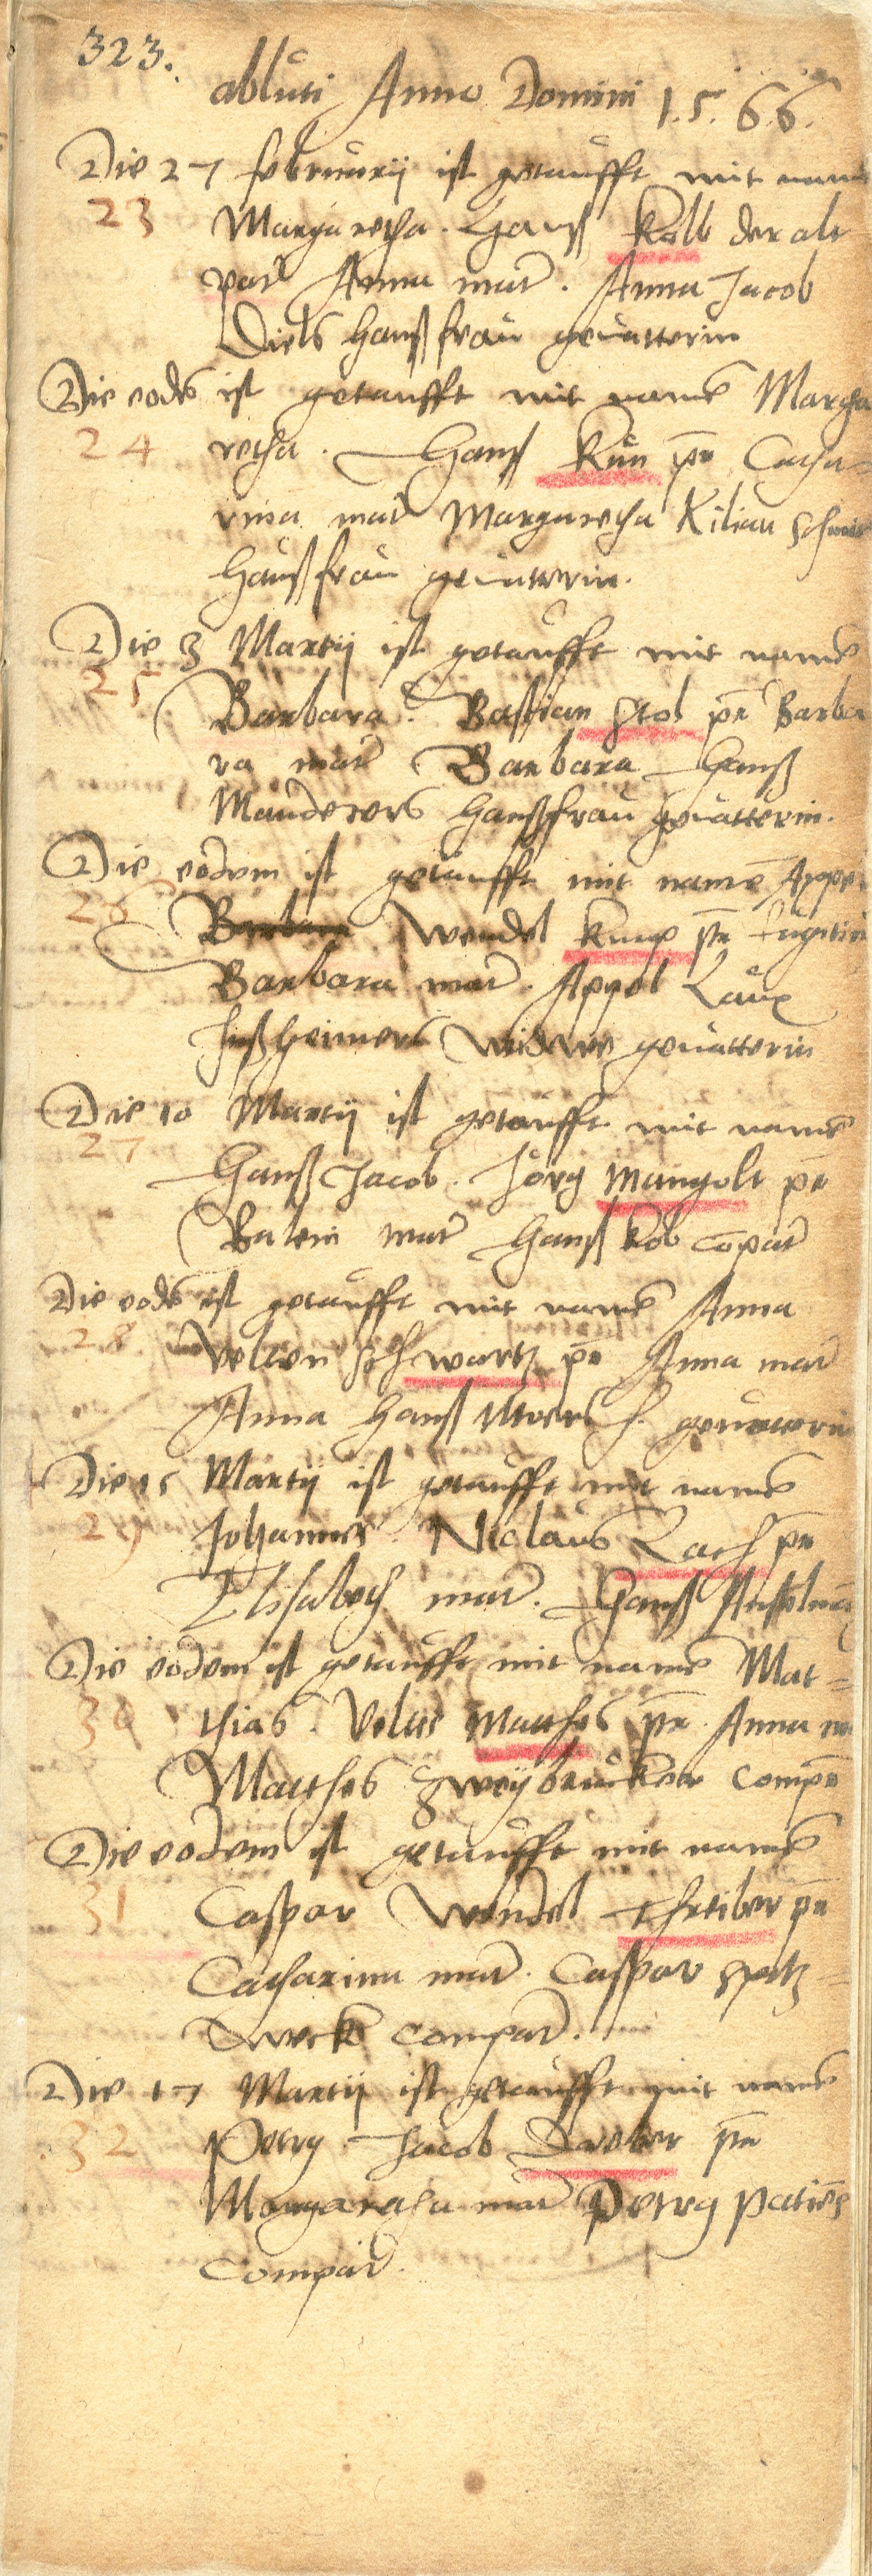 323.
abluti Anno Domini 1.5.66.
Die 27 februarij ist getaufft mit name
23 Margaretha. Hanß Kolb der alt
pař Anna mař. Anna Jacob
Diels haußfrau geuatterin
Die eodē ist getaufft mit namē Marga
24 retha. Hanß Kun pr̄ Catha-
rina mař Margaretha Kilian
haußfrau geuatterin.
Die 3 Martij ist getaufft mit namē
25 Barbara. Bastian Stol pr̄ Barba
ra mař Barbara Hanß
Mauderers haußfrau geuatterin.
Die eodem ist getaufft mit namē Appel
26 Barbara Wendel pr̄
Barbara mař. Appel Laux
widwe geuatterin
Die 10 Martij ist getaufft mit namē
27 Hanß Jacob. Jörg Mangolt pr̄
mař Hanß Kob copař
Die eodē ist getaufft mit namē Anna
28 Velten Schwartz pr̄ Anna mař
Anna Hanß h. geuatterin
Die 15 Martij ist getaufft mit namē
29 Johannes. Niclaus Lach pr̄
Elisabeth mař. Hanß
Die eodem ist getaufft mit namē Mat=
30 thias. Velte Matthes pr̄. Anna m
Matthes Zweijbrucker compr̄
Die eodem ist getaufft mit namē
31 Caspar Wendel pr̄
Catharina mař. Caspar Spitz=
compař.
Die 17 Martij ist getaufft mit namē
32 Petrg Jacob Dreher pr̄
Margaretha mař Petrg
compař.